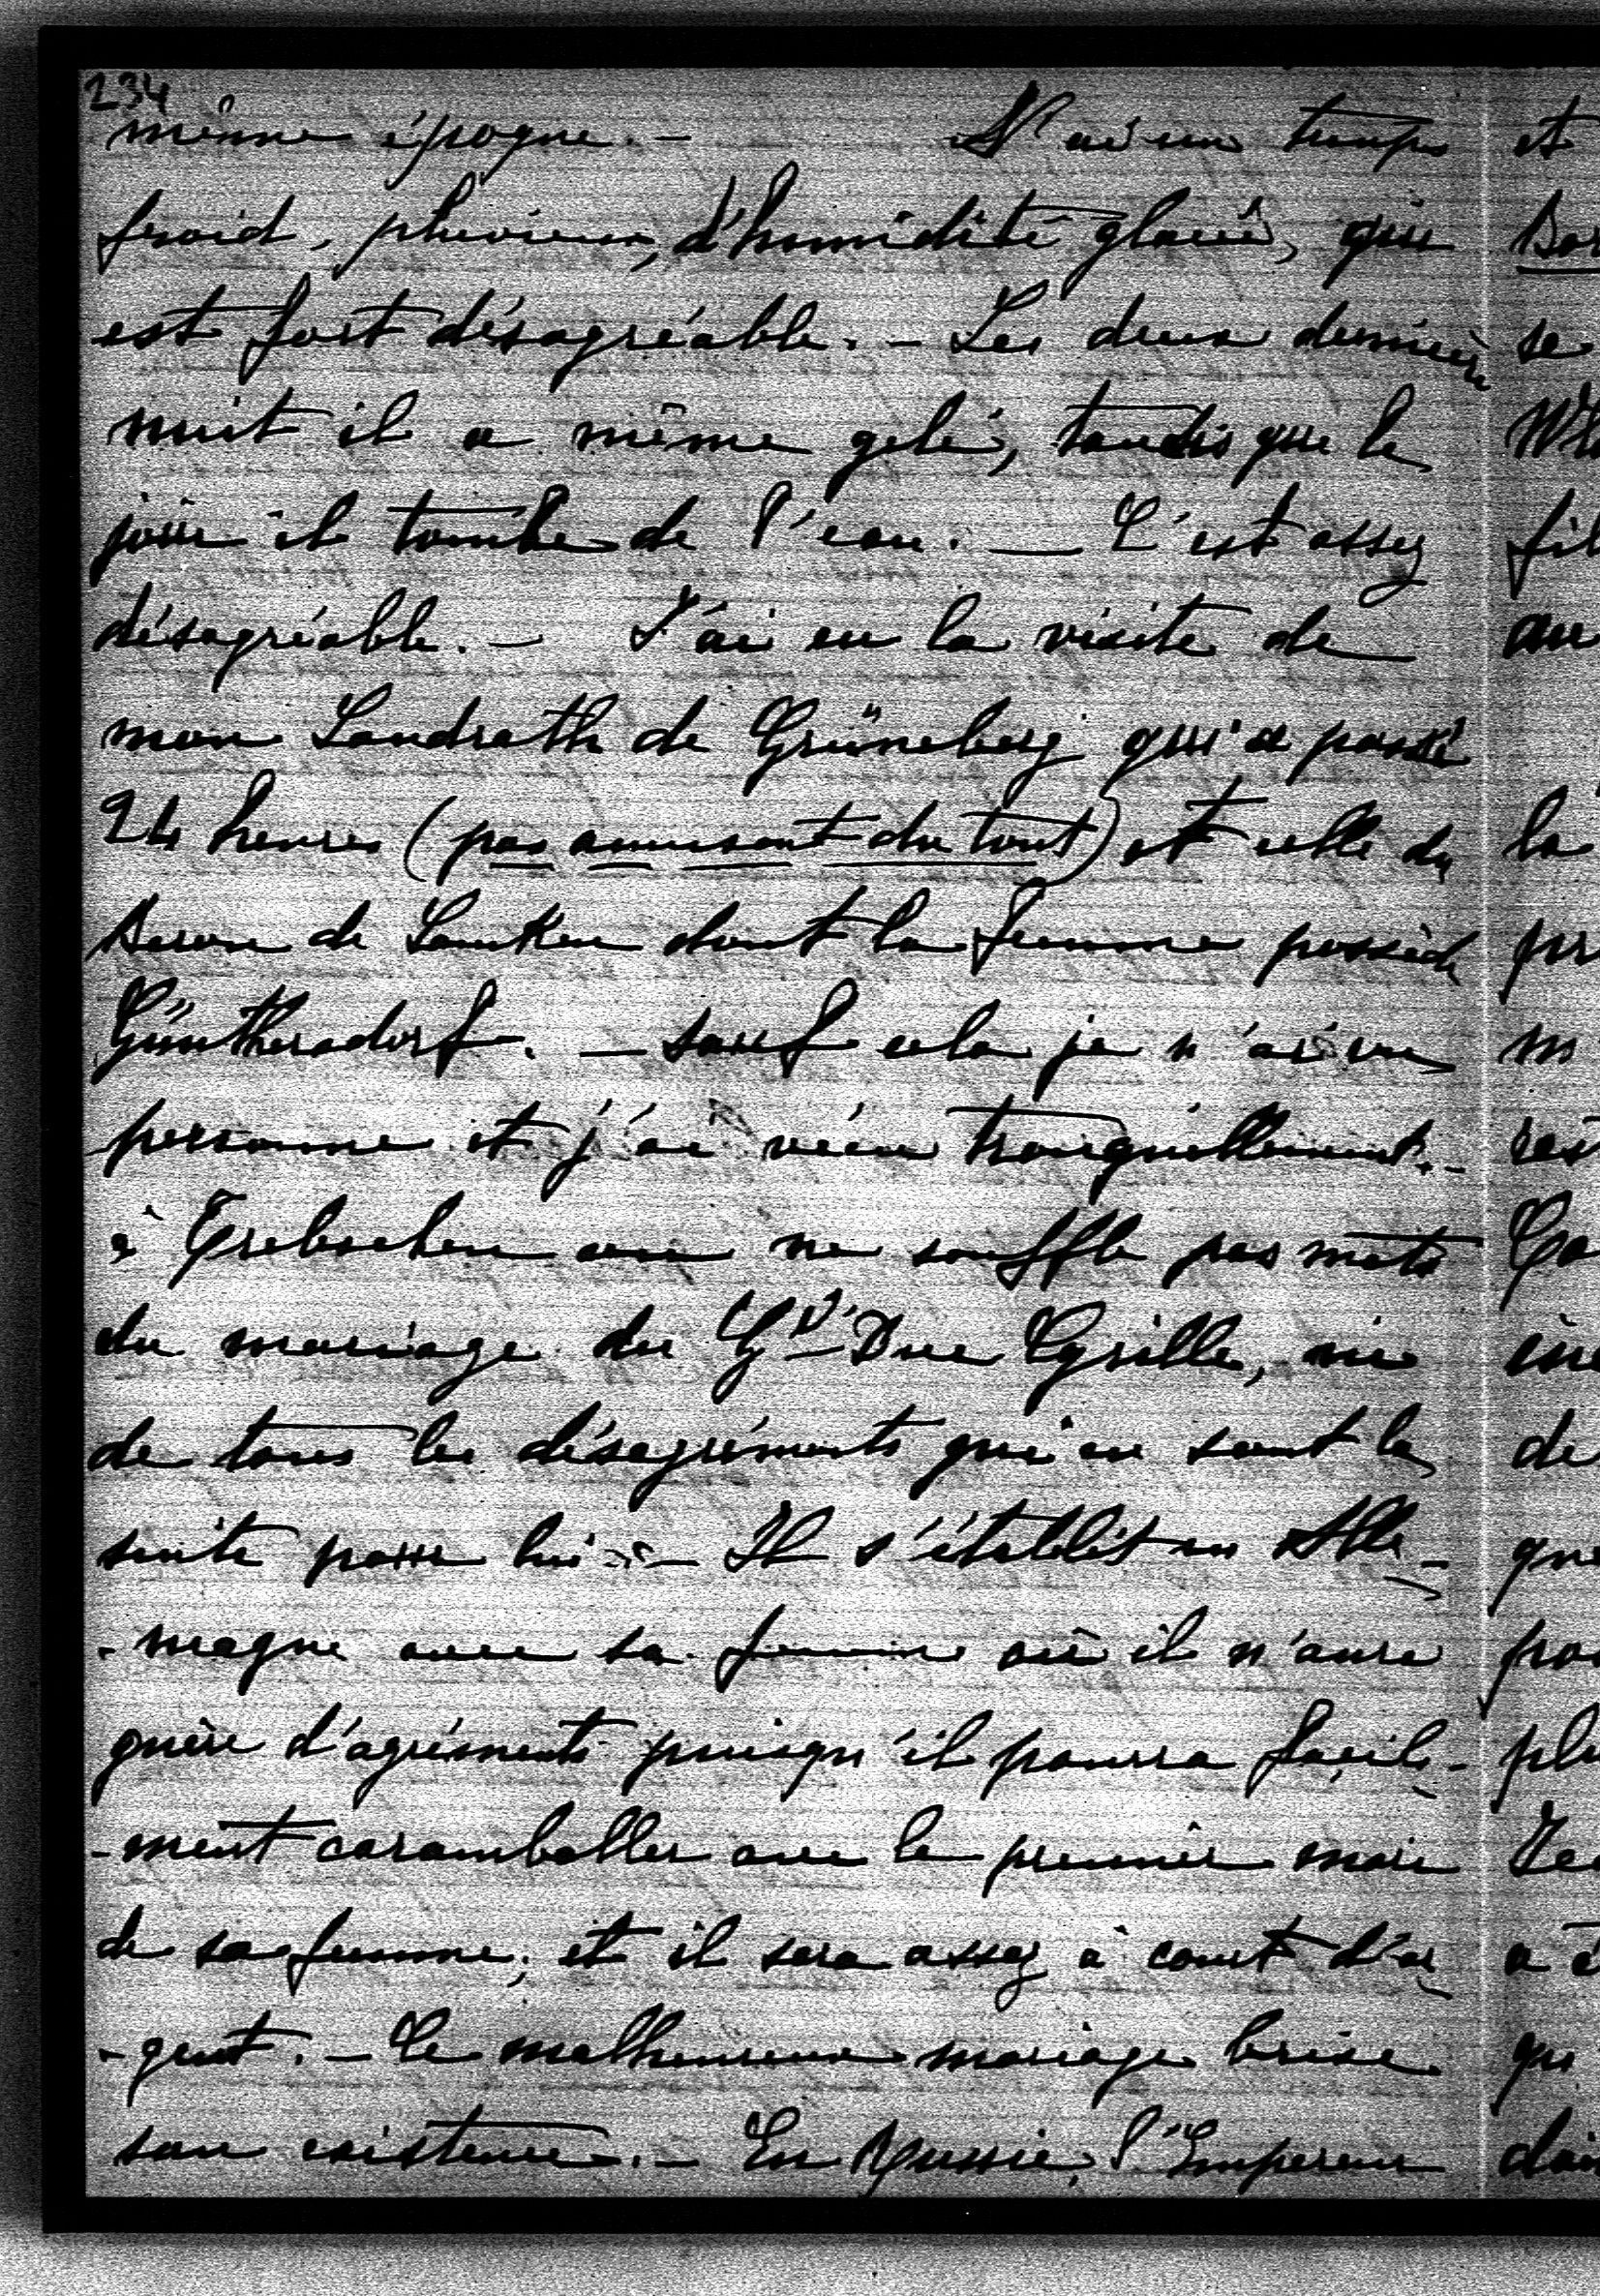 234
même époque. — N' ai un temps
froid, pluvieux, d'humidité glacée, qui
est fort désagréable. — Les deux dernière
nuit il a même gelé, tandis que le
jour il tombe de l'eau. — C'est assez
désagréable. — J'ai eu la visite de
mon Landrath de Grüneberg qui a passé
24 heures (pas amusant du tout) et celle du
Baron de Lanken dont la femme possède
Günthersdorf. — Sauf cela je n'ai vu
personne et j'ai vécu tranquillement. —
à Trebschen on ne souffle pas mots
du mariage du Gd Duc Cyrille, ni
de tous les désagréments qui en sont la
suite pour lui — Il s'établit en Alle-
-magne avec sa femme où il n'aura
guère d'agréments puisqu'il pourra facile-
-ment caramboller avec le premier mari
de sa femme, et il sera assez à court d'ar
-gent. — Ce malheureux mariage brise
son existence. — En Russie, l'Empereur
et
se
fil
au
la
de
plu